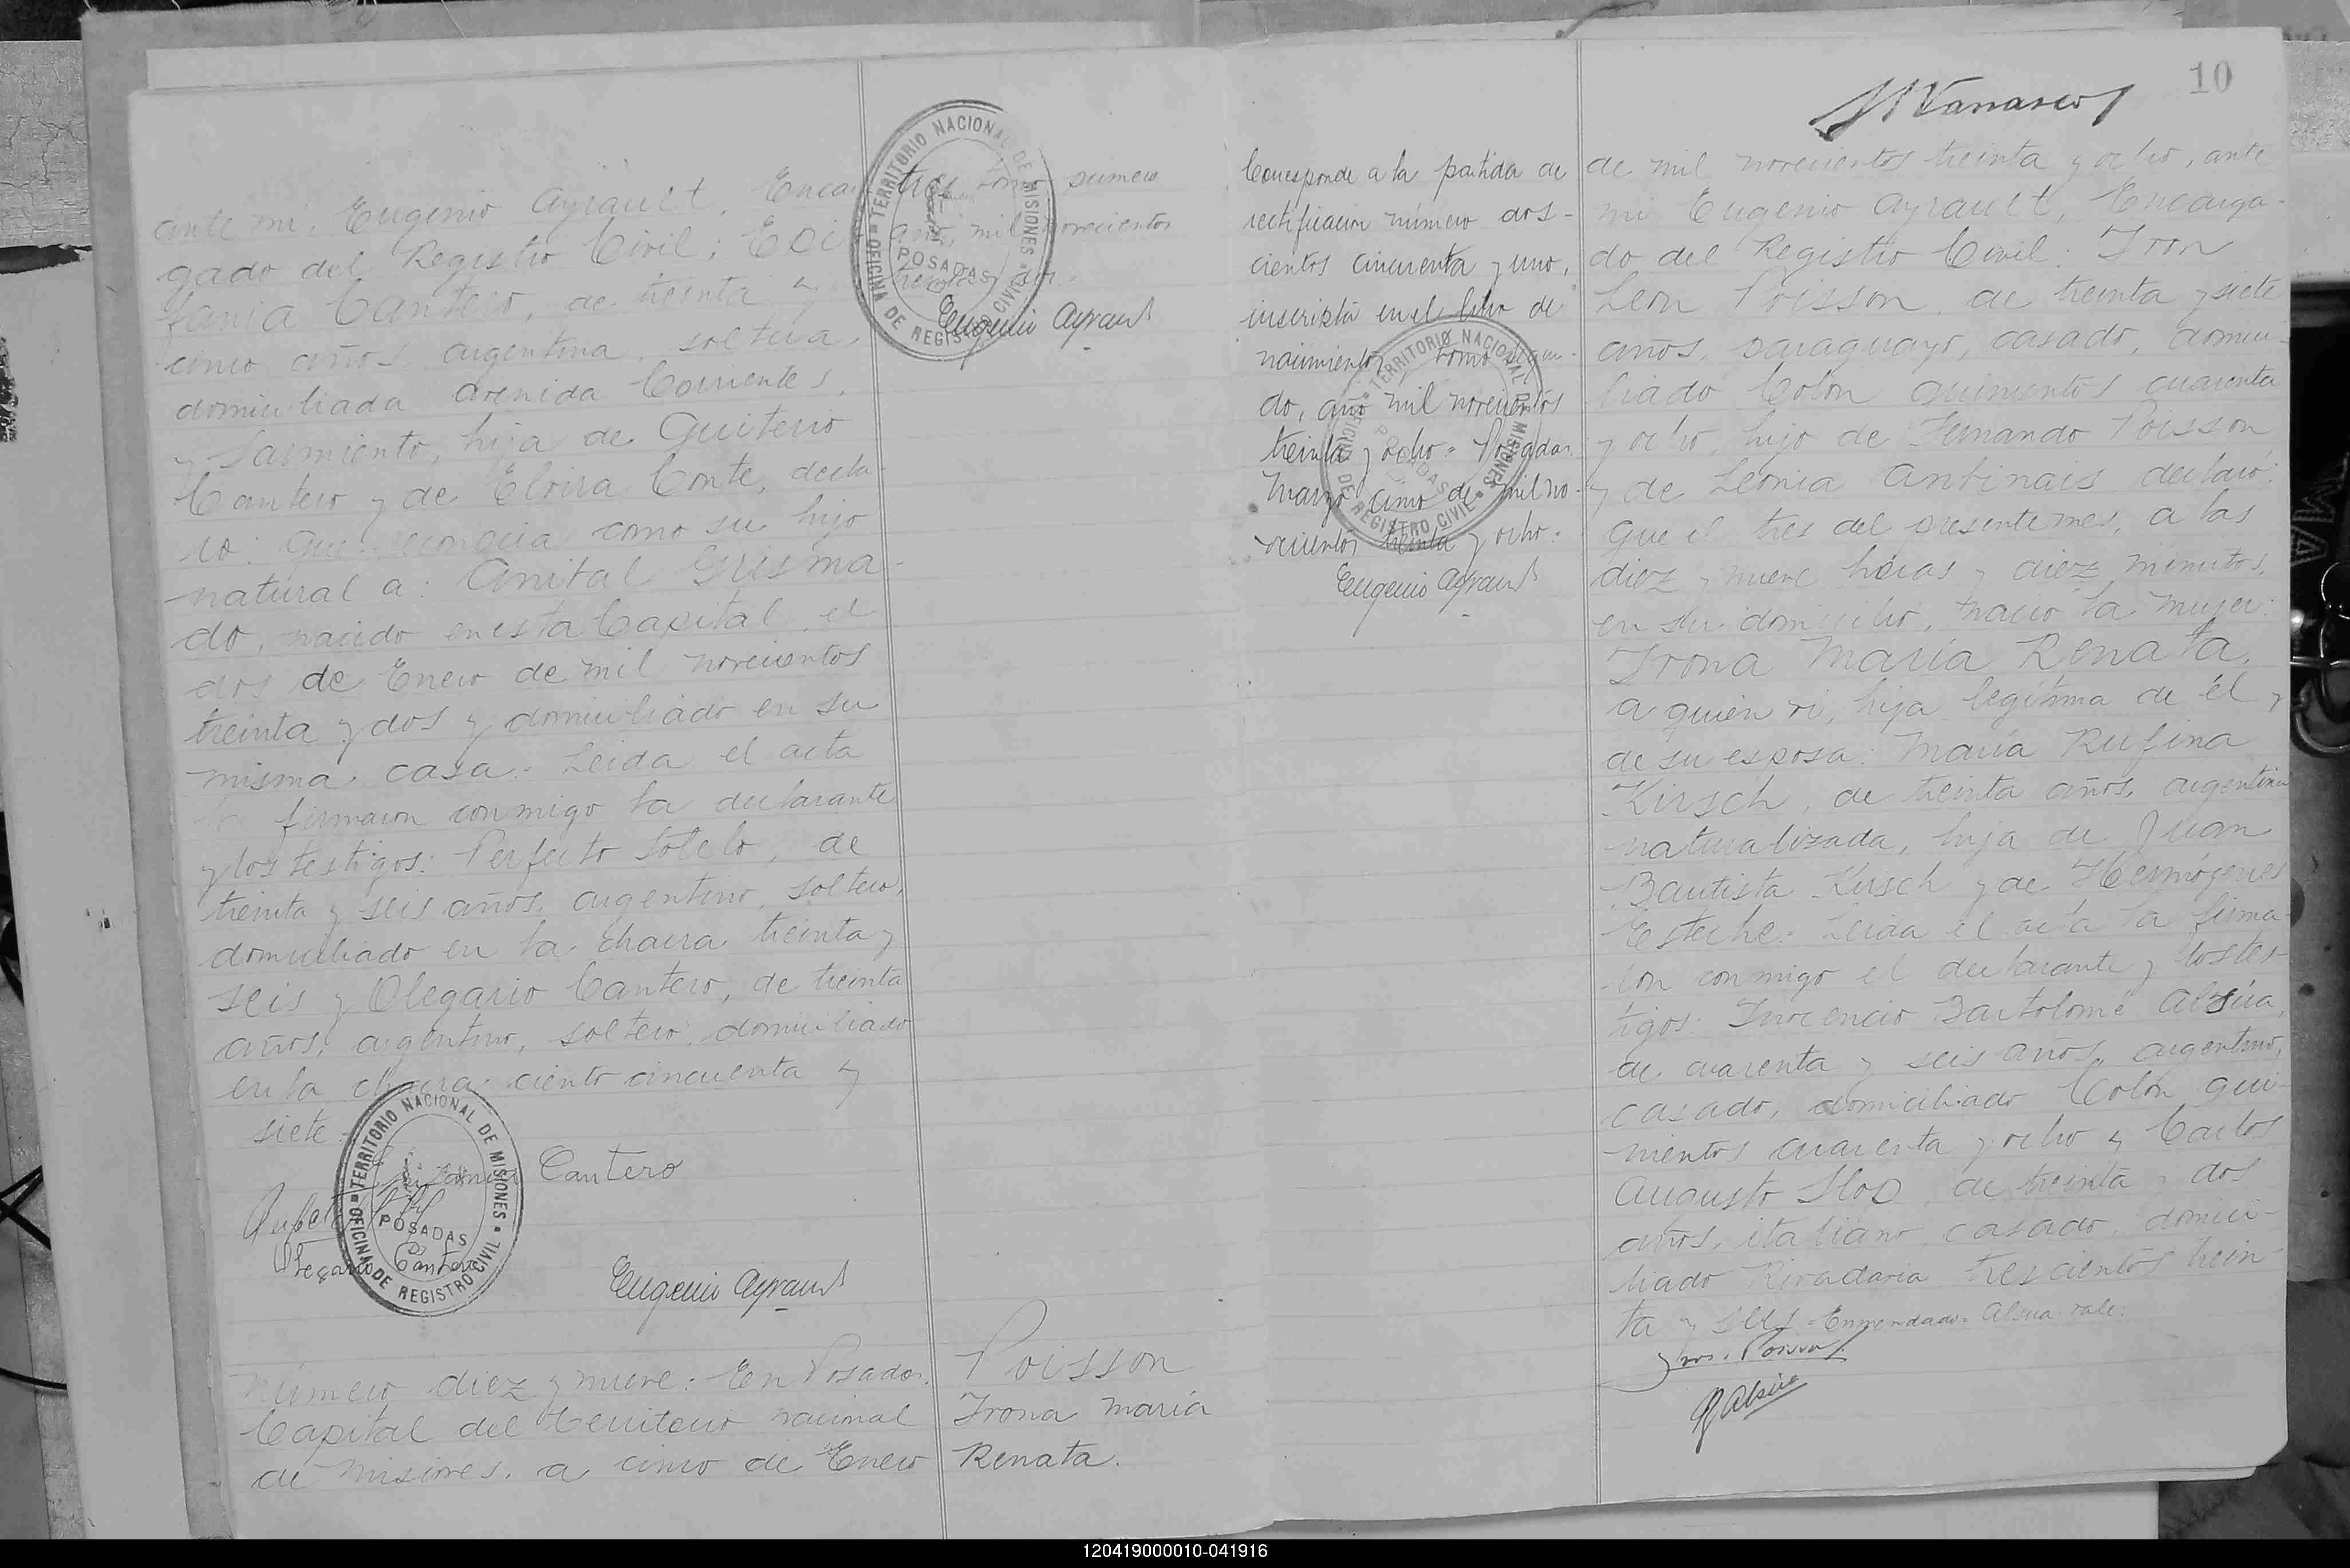 ante mi, Eugenio Ayrault, Encar-
gado del Registro Civil; Edi
fania Cantero, de treinta y
cinco años, argentina, soltera,
domiciliada avenida Corrientes,
y Sarmiento, hija de Quiterio
Cantero y de Elvira Conte, decla-
ró: Que reconocía como su hijo
natural a: Anital Grisma-
do, nacido en esta Capital, el
dos de Enero de mil novecientos
treinta y dos y domiciliado en su
misma casa.- Leida el acta
la firmaron conmigo la declarante
y los testigos: Perfecto Sotelo, de
treinta y seis años, argentino, soltero,
domiciliado en la chacra treinta y
seis y Olegario Cantero, de treinta
años, argentino, soltero, domiciliado
en la chacra ciento cincuenta y
siete.-
Cantero
Olegario Cantero
Eugenio Ayrault
OFICINA DE REGISTRO CIVIL
TERRITORIO NACIONAL DE MISIONES
POSADAS
tres tomo primero
año, mil novecientos
treinta y
Eugenio Ayrault
MUNICIPIO
TERRITORIO NACIONAL DE MISIONES
POSADAS
DE REGISTRO CIVIL
número diez y nueve: En Posadas,
Capital del Territorio nacional
de Misiones, a cinco de Enero
Poisson
Irona María
Renata.
10
Corresponde a la partida de
rectificación número dos-
cientos cincuenta y uno,
inscripta en el libro de
nacimientos, tomo segun-
do, año mil novecientos
treinta y ocho= Posadas,
Marzo cinco de mil no-
vecientos treinta y ocho=
Eugenio Ayrault
TERRITORIO NACIONAL DE MISIONES
OFICINA DE REGISTRO CIVIL
POSADAS
de mil novecientos treinta y ocho, ante
mi Eugenio Ayrault, Encarga-
do del Registro Civil: Iron
Leon Poisson, de treinta y siete
años, paraguayo, casado, domici-
liado Colon quinientos cuarenta
y ocho, hijo de Fernando Poisson
y de Leonia Antinais declaró:
Que el tres del presente mes, a las
diez y nueve horas y diez minutos,
en su domicilio, nació la mujer:
Irona María Renata,
a quien vi, hija legítima de él y
de su esposa: María Rufina
Kirsch, de treinta años, argentina
naturalizada, hija de Juan
Bautista Kirsch y de Hermógenes
Esteche.- Leida el acta la firma-
ron conmigo el declarante y los tes-
tigos: Inocencio Bartolomé Alsúa,
de cuarenta y seis años, argentino,
casado, domiciliado Colon qui-
nientos cuarenta y ocho y Carlos
Augusto Slop, de treinta y dos
años, italiano, casado, domici-
liado Rivadavia trescientos trein-
ta y seis=Enmendado=Alsua vale.
Poisson
Alsúa
120419000010-041916